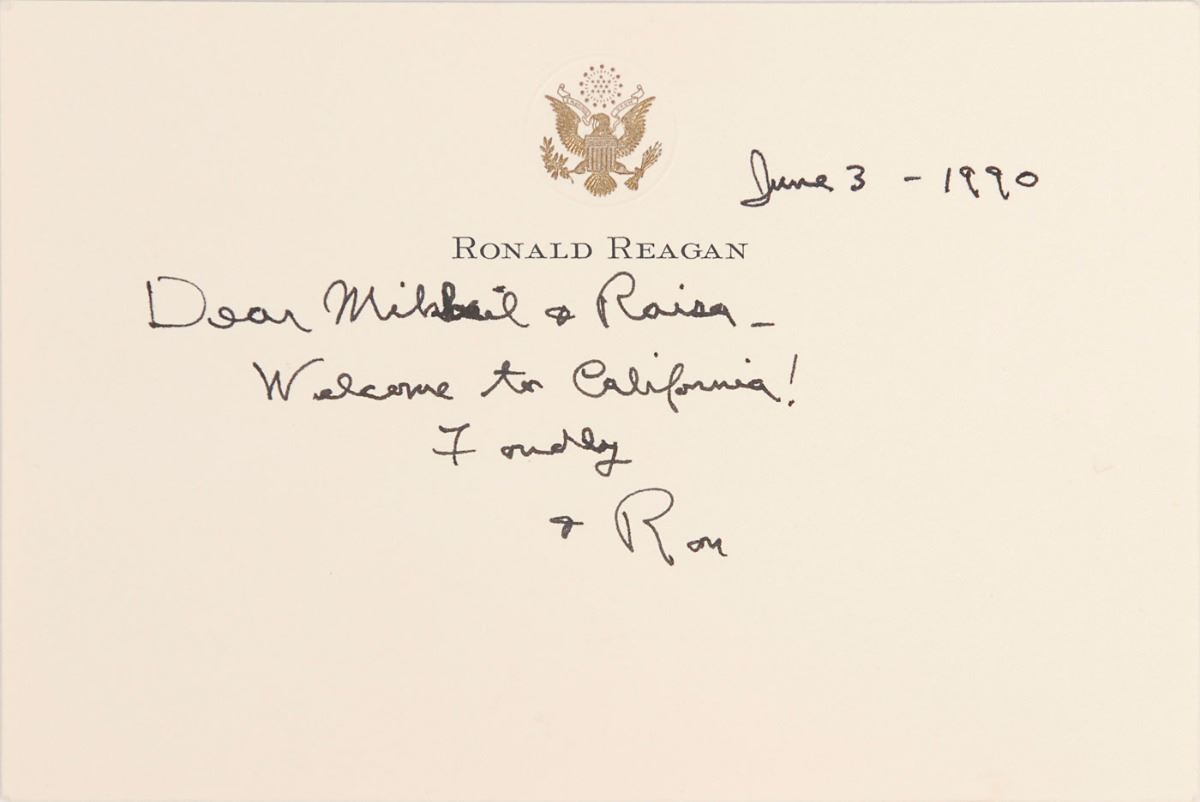 June 3 - 1990
RONALD REAGAN
Dear Mikhail & Raisa -
Welcome to California!
Fondly
& Ron